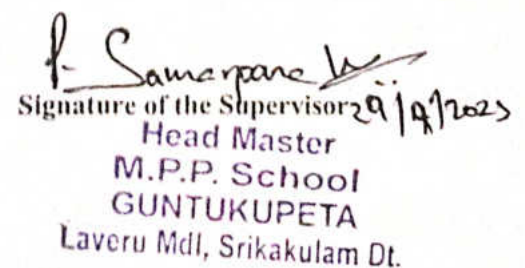 P. Samarpana
Signature of the Supervisor 29/9/2023
Head Master
M.P.P. School
GUNTUKUPETA
Laveru Mdl, Srikakulam Dt.